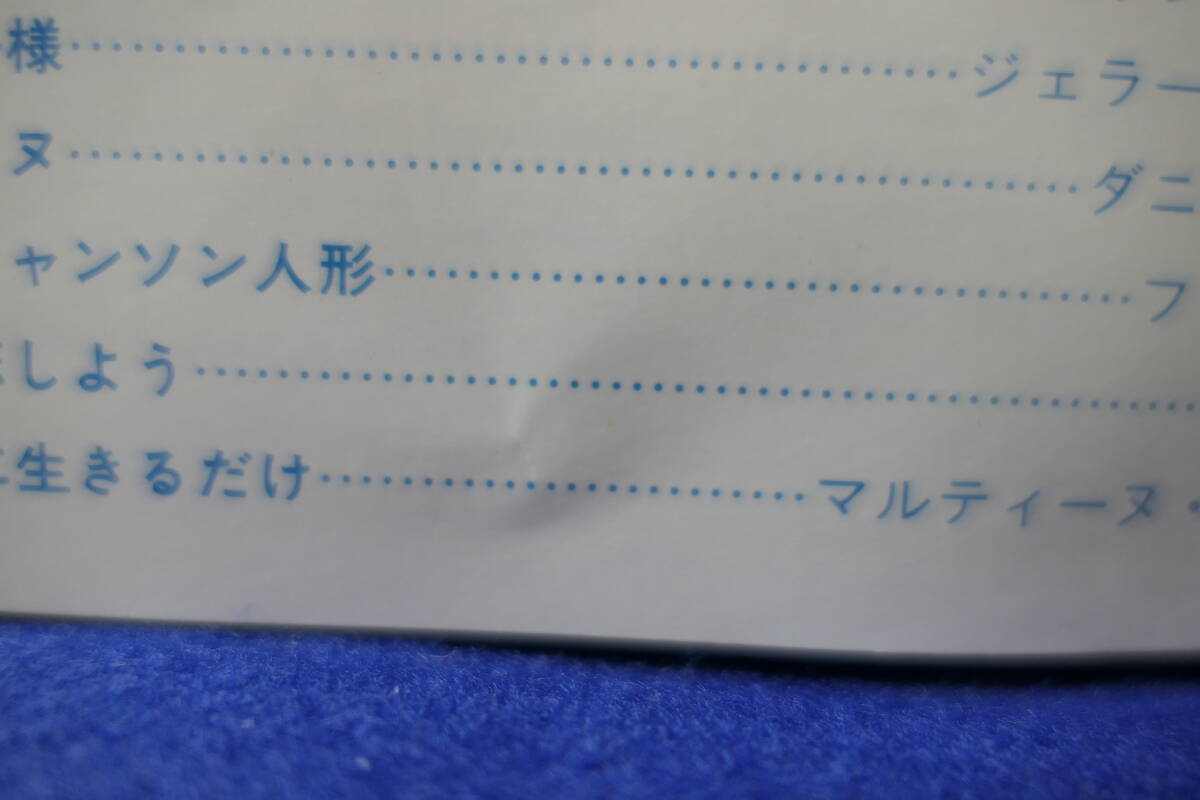 様……………………………ジェラー
ヌ……………………………ダニ
ャンソン人形……………………………フ
しよう……………………………
生きるだけ……………………………マルティーヌ・